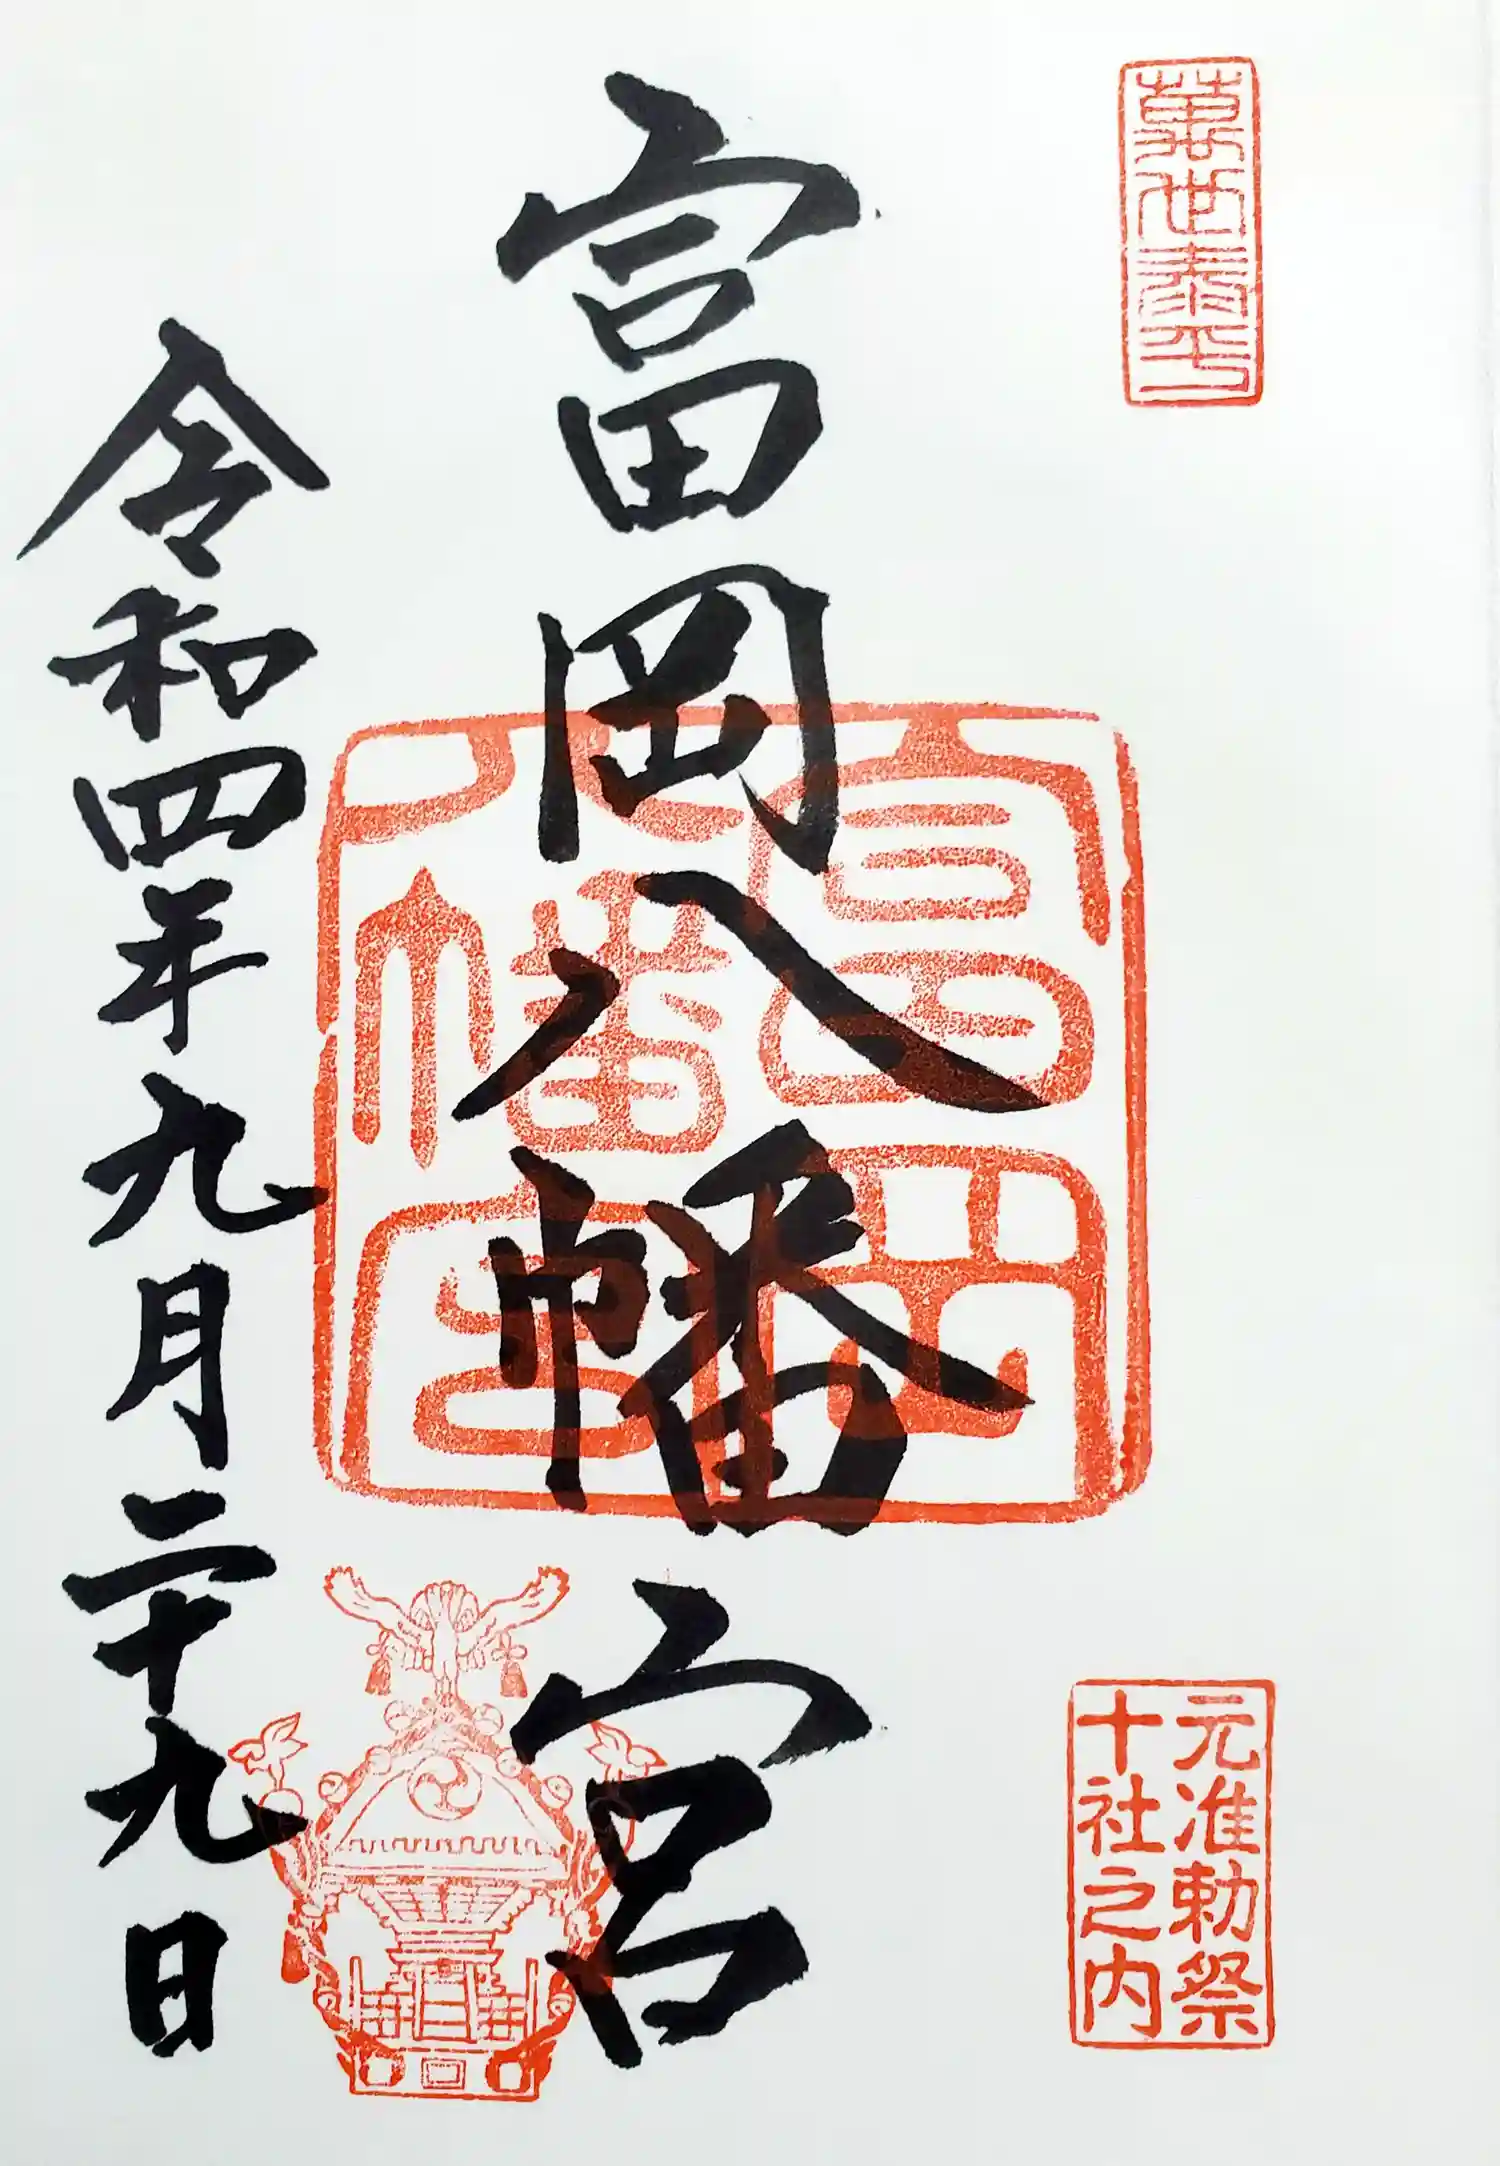 萬世泰平
元准勅祭
十社之内
富岡八幡宮
富岡
八幡宮
令和四年九月二十九日